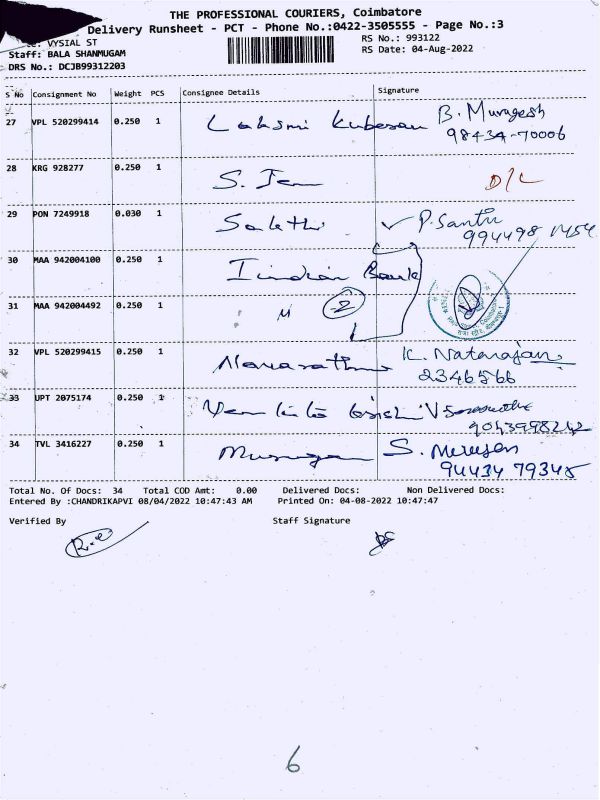 THE PROFESSIONAL COURIERS, Coimbatore
Delivery Runsheet - PCT - Phone No.:0422-3505555 - Page No.:3
VYSIAL ST
RS No.: 993122
Staff: BALA SHANMUGAM
RS Date: 04-Aug-2022
DRS No.: DCJB99312203
S No Consignment No Weight PCS Consignee Details Signature
27 VPL 520299414 0.250 1 Lakshmi Kuberan B. Murugesh
98434-70006
28 KRG 928277 0.250 1 S. Jen D/L
29 PON 7249918 0.030 1 Sakthi P. Santhi
994498 1454
30 MAA 942004100 0.250 1 Indian Bank
31 MAA 942004492 0.250 1 " 2
32 VPL 520299415 0.250 1 K. Natarajan
2346566
33 UPT 2075174 0.250 1
9043998242
34 TVL 3416227 0.250 1 Murugan S. Murugan
94434 79345
Total No. Of Docs: 34 Total COD Amt: 0.00 Delivered Docs: Non Delivered Docs:
Entered By :CHANDRIKAPVI 08/04/2022 10:47:43 AM Printed On: 04-08-2022 10:47:47
Verified By Staff Signature
6